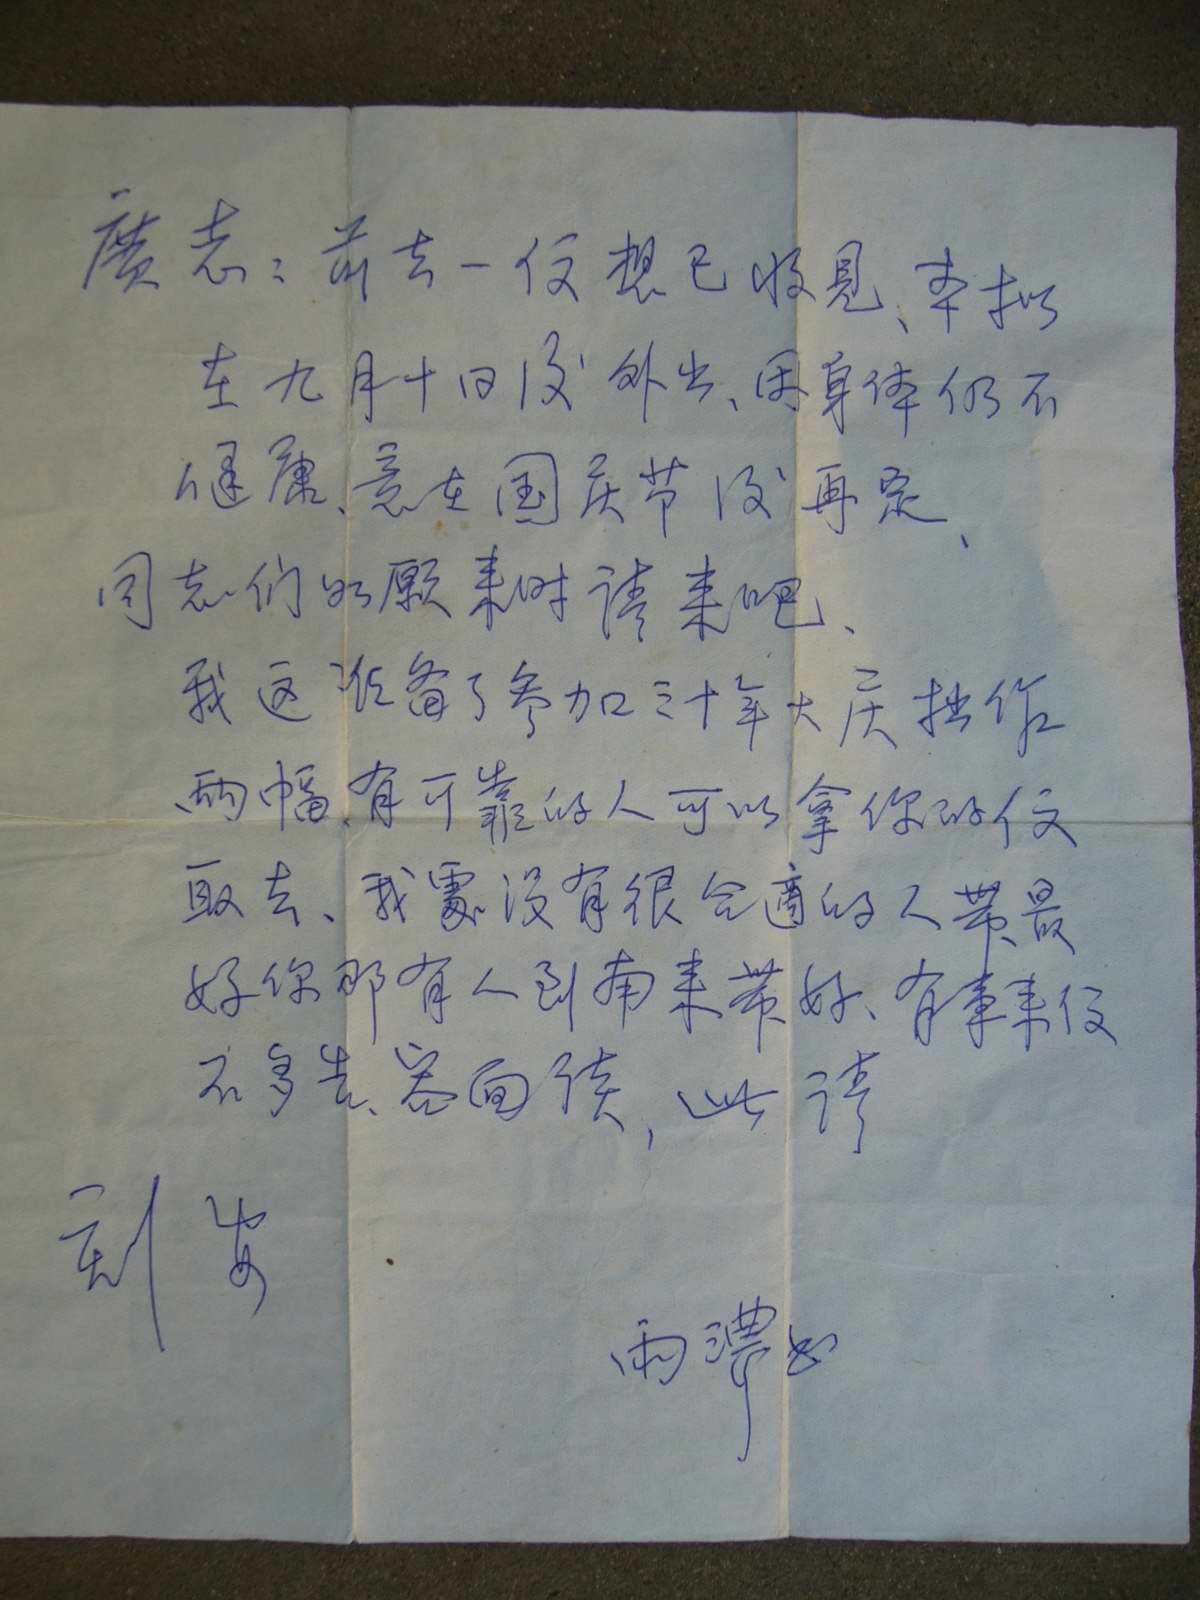 广志：前去一信想已收见、本拟
在九月十日后外出、因身体仍不
健康、意在国庆节后再定、
同志们如愿来时请来吧、
我这准备了参加三十年大庆拙作
两幅、有可靠的人可以拿你的信
取去、我处没有很合适的人带、最
好你那有人到南来带好、有事来信
不多告、容面谈，此请
刻安
雨浓